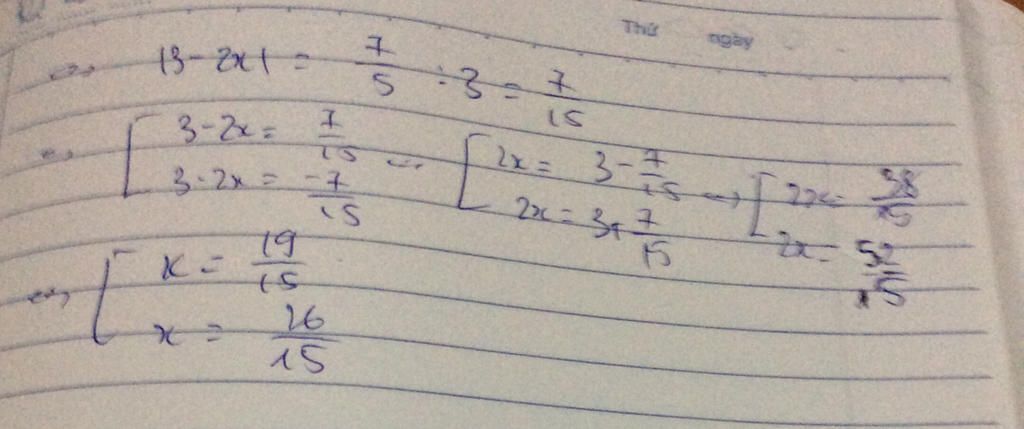 Thứ ngày
<=> |3 - 2x| = 7/5 : 3 = 7/15
<=> [ 3 - 2x = 7/15 <=> [ 2x = 3 - 7/15 <=> [ 2x = 38/15
3 - 2x = -7/15 2x = 3 + 7/15 2x = 52/15
<=> [ x = 19/15
x = 26/15